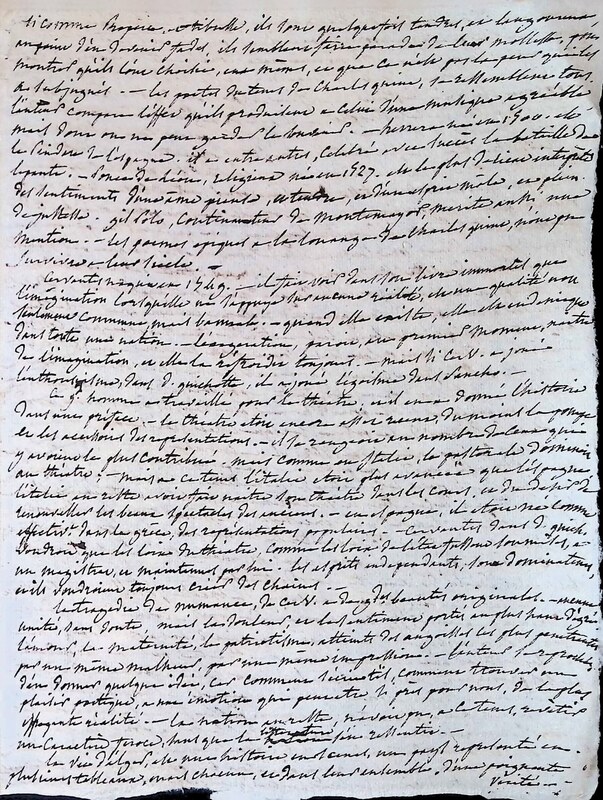 si comme Properce, et Tibulle, ils sont quelquefois tendres, et langoureux,
au point d'en devenir fades, ils semblent faire parade de leur mollesse, pour
montrer qu'ils l'ont choisie, eux mêmes, et que ce n'est pas la peur qui les
a subjugués. - les poëtes du tems de Charles quint, se ressemblent tous.
l'auteur compare l'effet qu'ils produisent a celui d'une musique agréable
mais dont on ne peut garder le souvenir. - herrera né en 1500. est
le Pindare de l'espagne. il a entre autres, célébré avec succès la bataille de
lépante. - Ponce de Léon, religieux né en 1527. est le plus délicieux interprète
des sentiments d'une âme pieuse, et tendre, et d'un esprit mâle, et plein
de justesse. gil Polo, continuateur de Montemayor, mérite aussi une
mention. - les poëmes épiques a la louange de Charles quint, n'ont pu
survivre a leur siècle -
Cervantes naquit en 1549. - il fait voir dans son livre immortel que
l'imagination lorsqu'elle ne s'appuye sur aucune réalité, est une qualité non
seulement commune, mais banale. - quand elle existe, elle est endémique
dans toute une nation. - l'exagération, paroit, au premier moment, naître
de l'imagination, et elle la refroidit toujours. - mais si Cerv. a joué
l'enthousiasme, dans d. quichotte, il a joué l'égoïsme dans Sancho. -
Ce g. homme a travaillé pour le théâtre, et il en a donné l'histoire
dans une préface. - le théâtre etoit encore assez près du moins la pompe
et les accessoires des représentations. - il se rangeoit au nombre de ceux qui
y avoient le plus contribué. mais comme en Italie, la pastorale domine
au théâtre. - mais a ce tems l'italie etoit plus avancée que l'espagne
l'italie en effet avoit fait naitre son théatre dans les cours, et du desir de
renouveller les beaux spectacles des anciens. - en espagne, il etoit né comme
effectivt. dans la grèce, des représentations populaires. - Cervantes dans d. quich.
voudroit que les loix du théatre, comme les loix de l'état fussent soumises, a
un magistrat, et maintenues par lui. les esprits independants, sont dominateurs,
et ils voudroient toujours créer des chaines. -
la tragédie de numance, de Cerv. a de gdes beautés originales. - aucune
unité, sans doute, mais la douleur, et le sentiment portés au plus haut degré
l'amour, la maternité, le patriotisme, atteints des angoisses les plus pénétrantes
par un même malheur, par une même impression. - l'auteur se reproche
d'en donner quelque idée, car comment seroit-il, comment trouver un
plaisir poëtique, a une émotion qui penetre si près pour nous, de la plus
effrayante réalité. - la nation en effet, n'avoit pu, a ce tems, revêtir
un caractère féroce, sans que la littérature s'en ressentit. -
la vie d'alger, est une histoire en scenes, un pays représenté en
plusieurs tableaux, mais chacun, et dans leur ensemble, d'une poignante
vérité. -